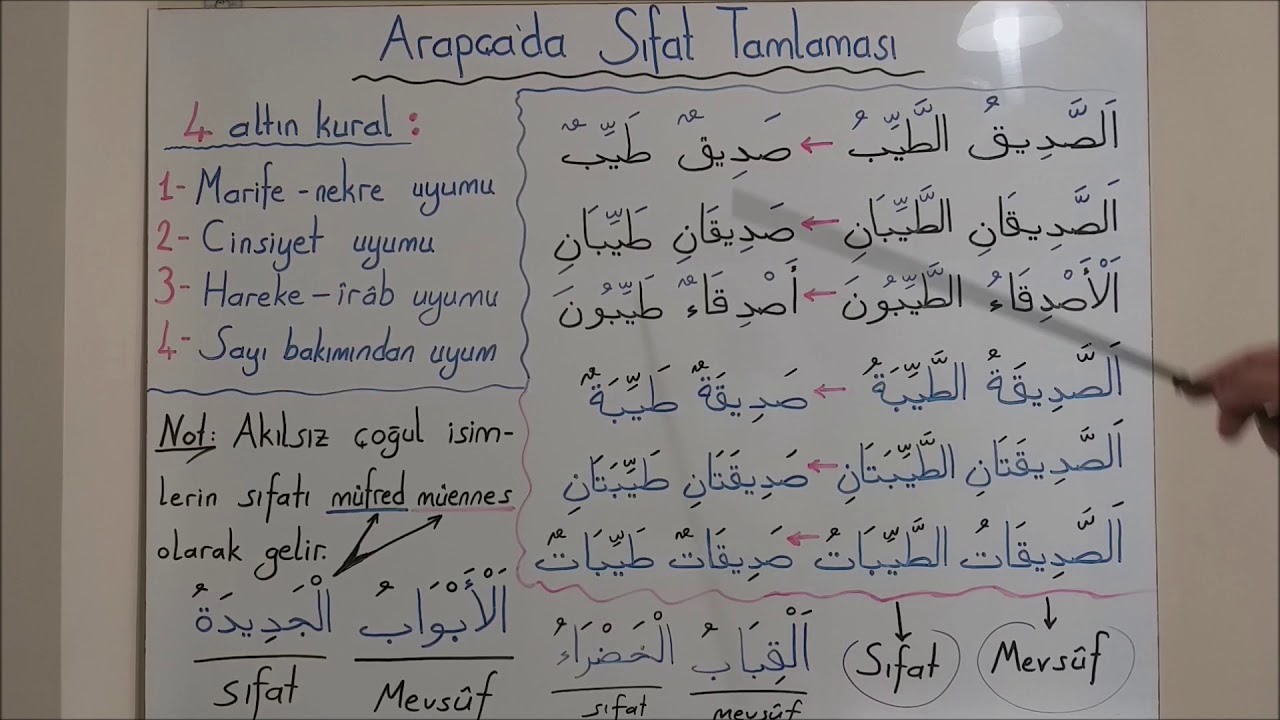 Arapça'da Sıfat Tamlaması
4 altın kural :
1- Marife - nekre uyumu
2- Cinsiyet uyumu
3- Hareke - îrâb uyumu
4- Sayı bakımından uyum
Not: Akılsız çoğul isim-
lerin sıfatı müfred müennes
olarak gelir.
اَلْأَبْوَابُ الْجَدِيدَةُ
Sıfat Mevsûf
اَلصَّدِيقُ الطَّيِّبُ ← صَدِيقٌ طَيِّبٌ
اَلصَّدِيقَانِ الطَّيِّبَانِ ← صَدِيقَانِ طَيِّبَانِ
اَلْأَصْدِقَاءُ الطَّيِّبُونَ ← أَصْدِقَاءٌ طَيِّبُونَ
اَلصَّدِيقَةُ الطَّيِّبَةُ ← صَدِيقَةٌ طَيِّبَةٌ
اَلصَّدِيقَتَانِ الطَّيِّبَتَانِ ← صَدِيقَتَانِ طَيِّبَتَانِ
اَلصَّدِيقَاتُ الطَّيِّبَاتُ ← صَدِيقَاتٌ طَيِّبَاتٌ
اَلْقِبَابُ الْخَضْرَاءُ
sıfat mevsûf
Sıfat Mevsûf